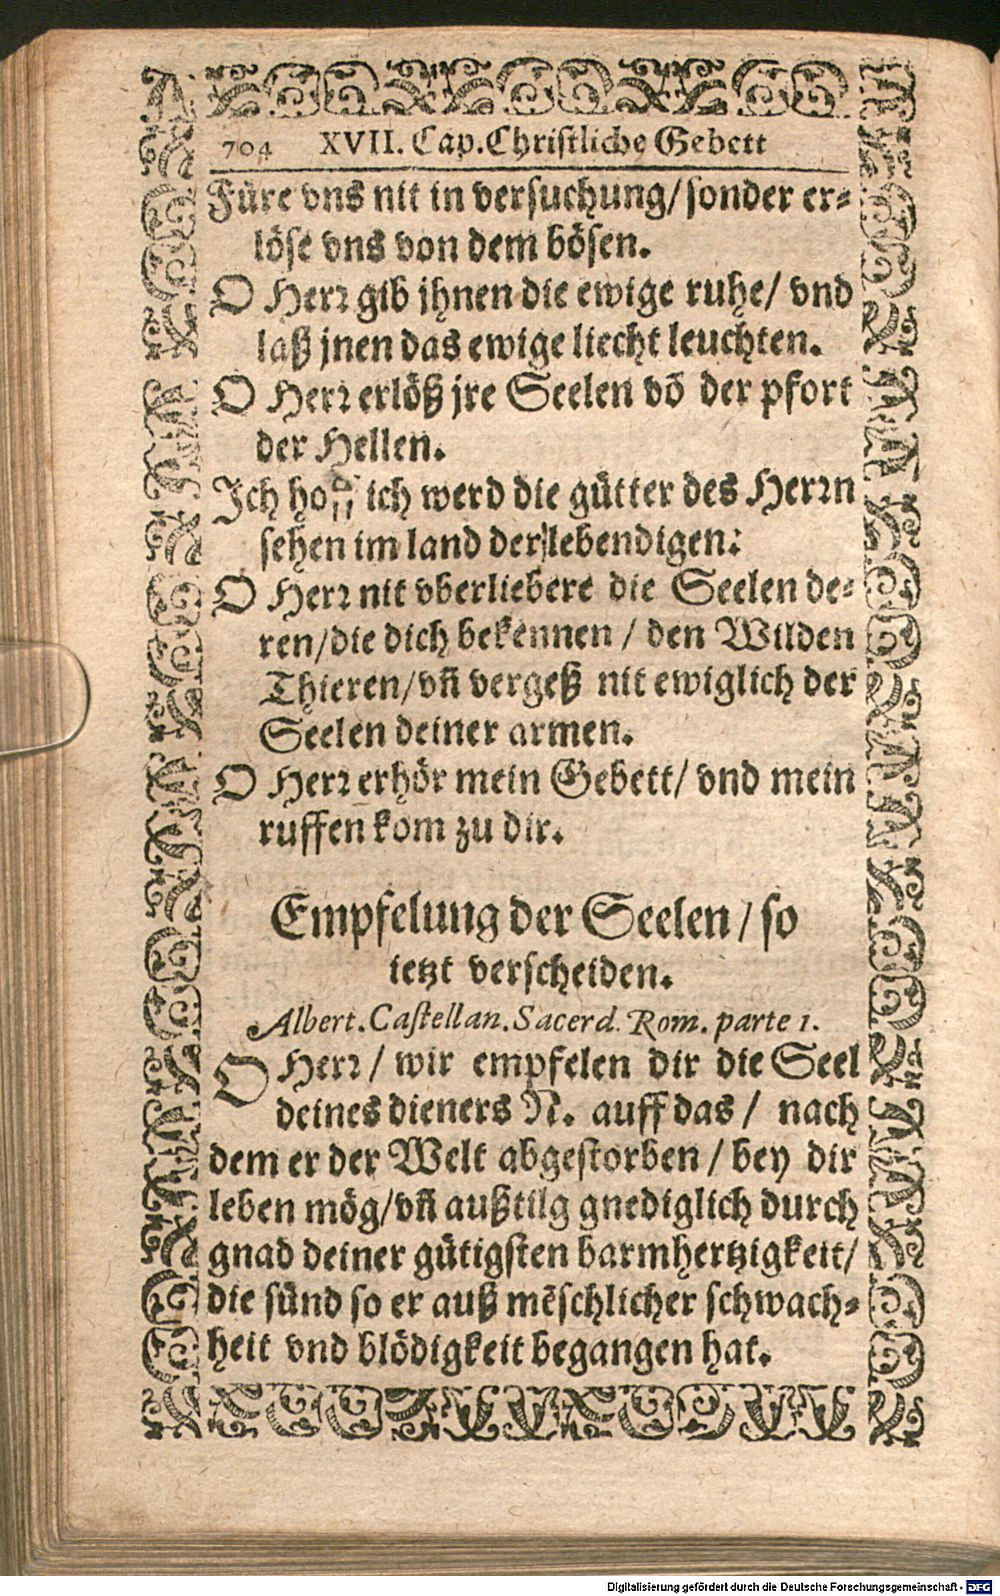 704 XVII. Cap. Christliche Gebett
Füre vns nit in versuchung/ sonder er-
löse vns von dem bösen.
O Herr gib jhnen die ewige ruhe/ vnd
laß jnen das ewige liecht leuchten.
O Herr erlöß jre Seelen võ der pfort
der Hellen.
Ich hoff ich werd die gütter des Herrn
sehen im land der lebendigen:
O Herr nit vberliebere die Seelen de-
ren/die dich bekennen / den Wilden
Thieren/vñ vergeß nit ewiglich der
Seelen deiner armen.
O Herr erhör mein Gebett/ vnd mein
ruffen kom zu dir.
Empfelung der Seelen / so
ietzt verscheiden.
Albert. Castellan. Sacerd. Rom. parte 1.
O Herr / wir empfelen dir die Seel
deines dieners N. auff das / nach
dem er der Welt abgestorben / bey dir
leben mög/vñ außtilg gnediglich durch
gnad deiner gütigsten barmhertzigkeit/
die sünd so er auß mẽschlicher schwach-
heit vnd blödigkeit begangen hat.
Digitalisierung gefördert durch die Deutsche Forschungsgemeinschaft - DFG